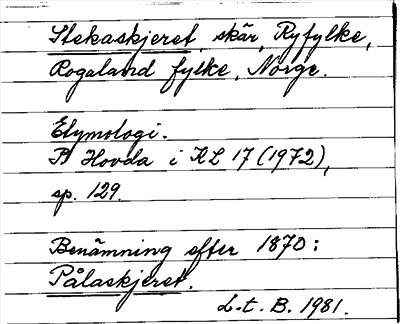 Stekaskjeret, skär, Ryfylke,
Rogaland fylke, Norge.
Etymologi.
P. Hovda i KL 17 (1972),
sp. 129.
Benämning efter 1870:
Pålaskjeret.
L.t. B. 1981.